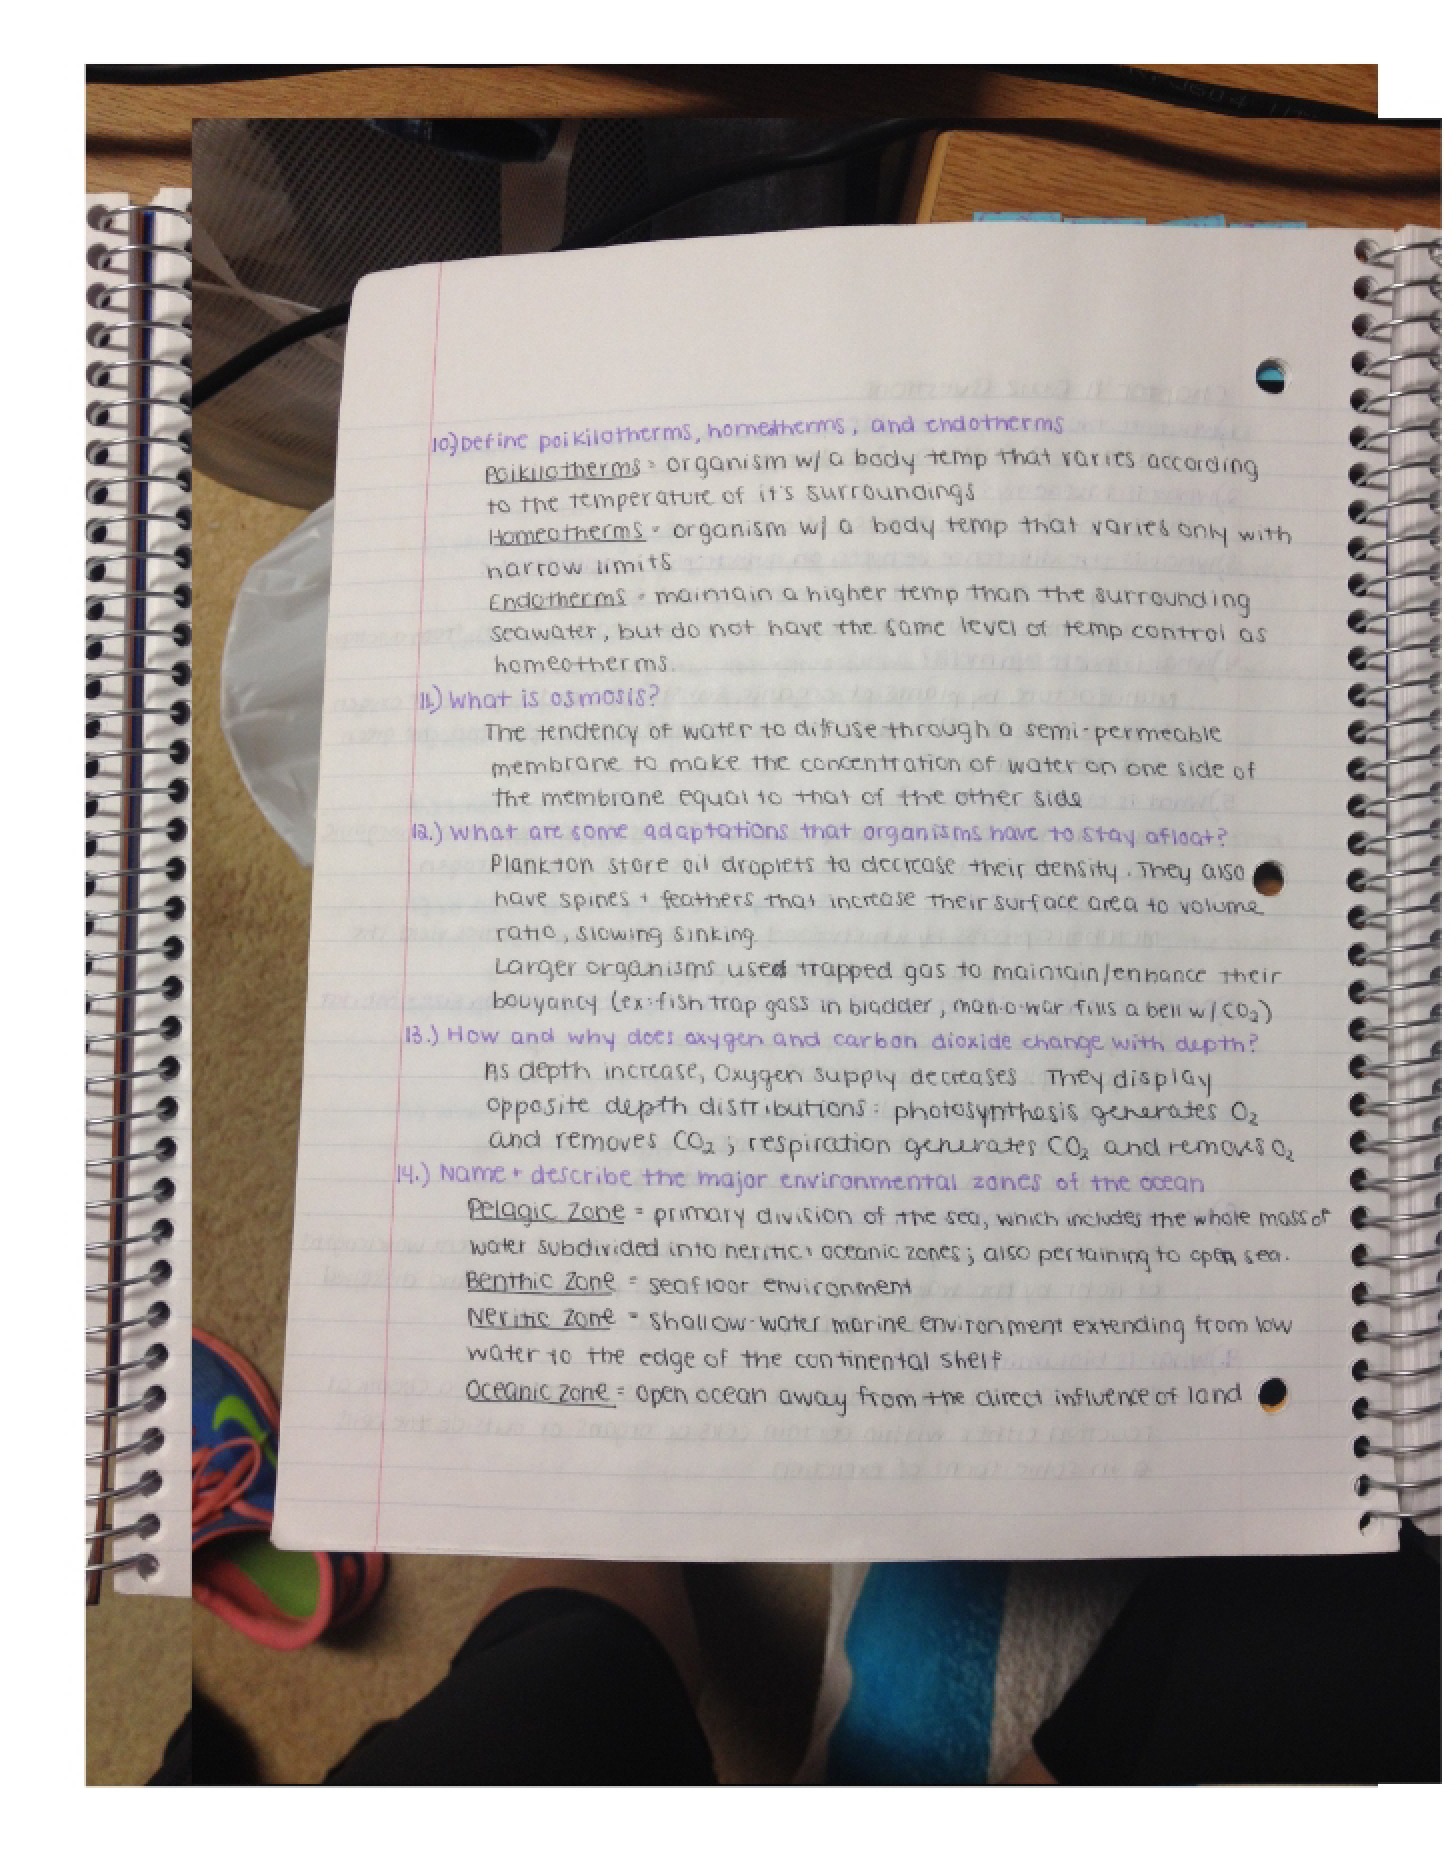 10) Define poikilotherms, homeotherms, and endotherms
Poikilotherms = organism w/ a body temp that varies according
to the temperature of it's surroundings
Homeotherms = organism w/ a body temp that varies only with
narrow limits
Endotherms = maintain a higher temp than the surrounding
seawater, but do not have the same level of temp control as
homeotherms.
11.) What is osmosis?
The tendency of water to diffuse through a semi-permeable
membrane to make the concentration of water on one side of
the membrane equal to that of the other side
12.) What are some adaptations that organisms have to stay afloat?
Plankton store oil droplets to decrease their density. They also
have spines + feathers that increase their surface area to volume
ratio, slowing sinking
Larger organisms used trapped gas to maintain/enhance their
bouyancy (ex: fish trap gass in bladder, man-o-war fills a bell w/ CO₂)
13.) How and why does oxygen and carbon dioxide change with depth?
As depth increase, oxygen supply decreases They display
opposite depth distributions: photosynthesis generates O₂
and removes CO₂; respiration generates CO₂ and removes O₂
14.) Name + describe the major environmental zones of the ocean
Pelagic Zone = primary division of the sea, which includes the whole mass of
water subdivided into neritic + oceanic zones; also pertaining to open sea.
Benthic Zone = seafloor environment
Neritic Zone = shallow-water marine environment extending from low
water to the edge of the continental shelf
Oceanic zone = open ocean away from the direct influence of land